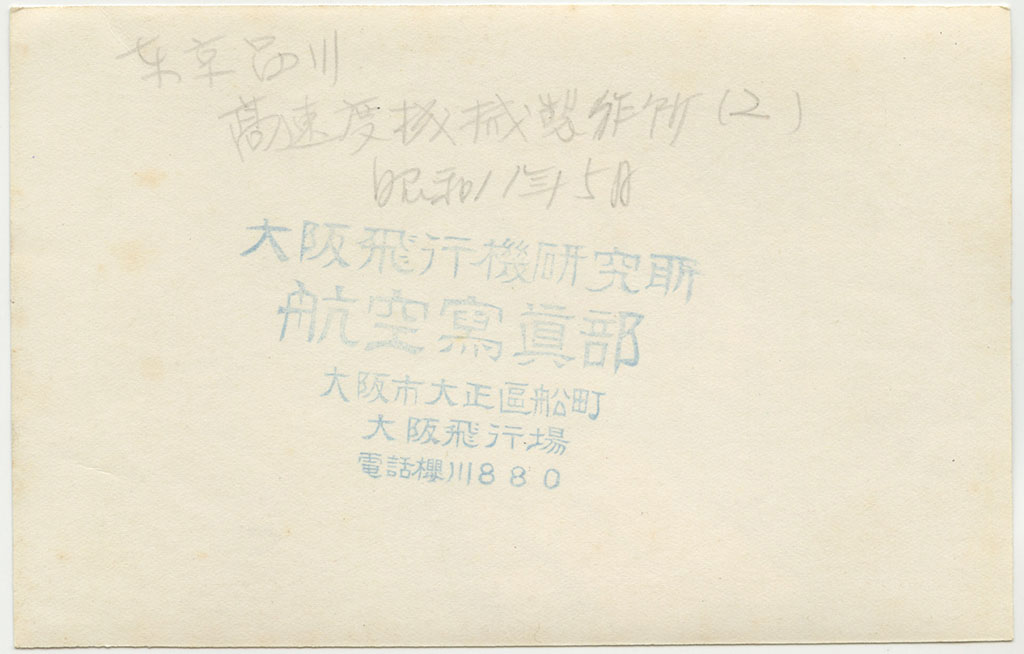 东京品川
高速度機械製作所(2)
昭和11年5月
大阪飛行機研究所
航空寫眞部
大阪市大正區船町
大阪飛行場
電話櫻川880